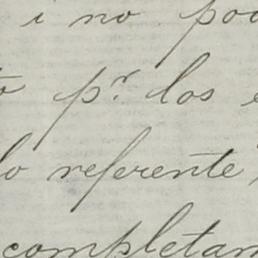 i no pod
to pr. los
lo referente
completam